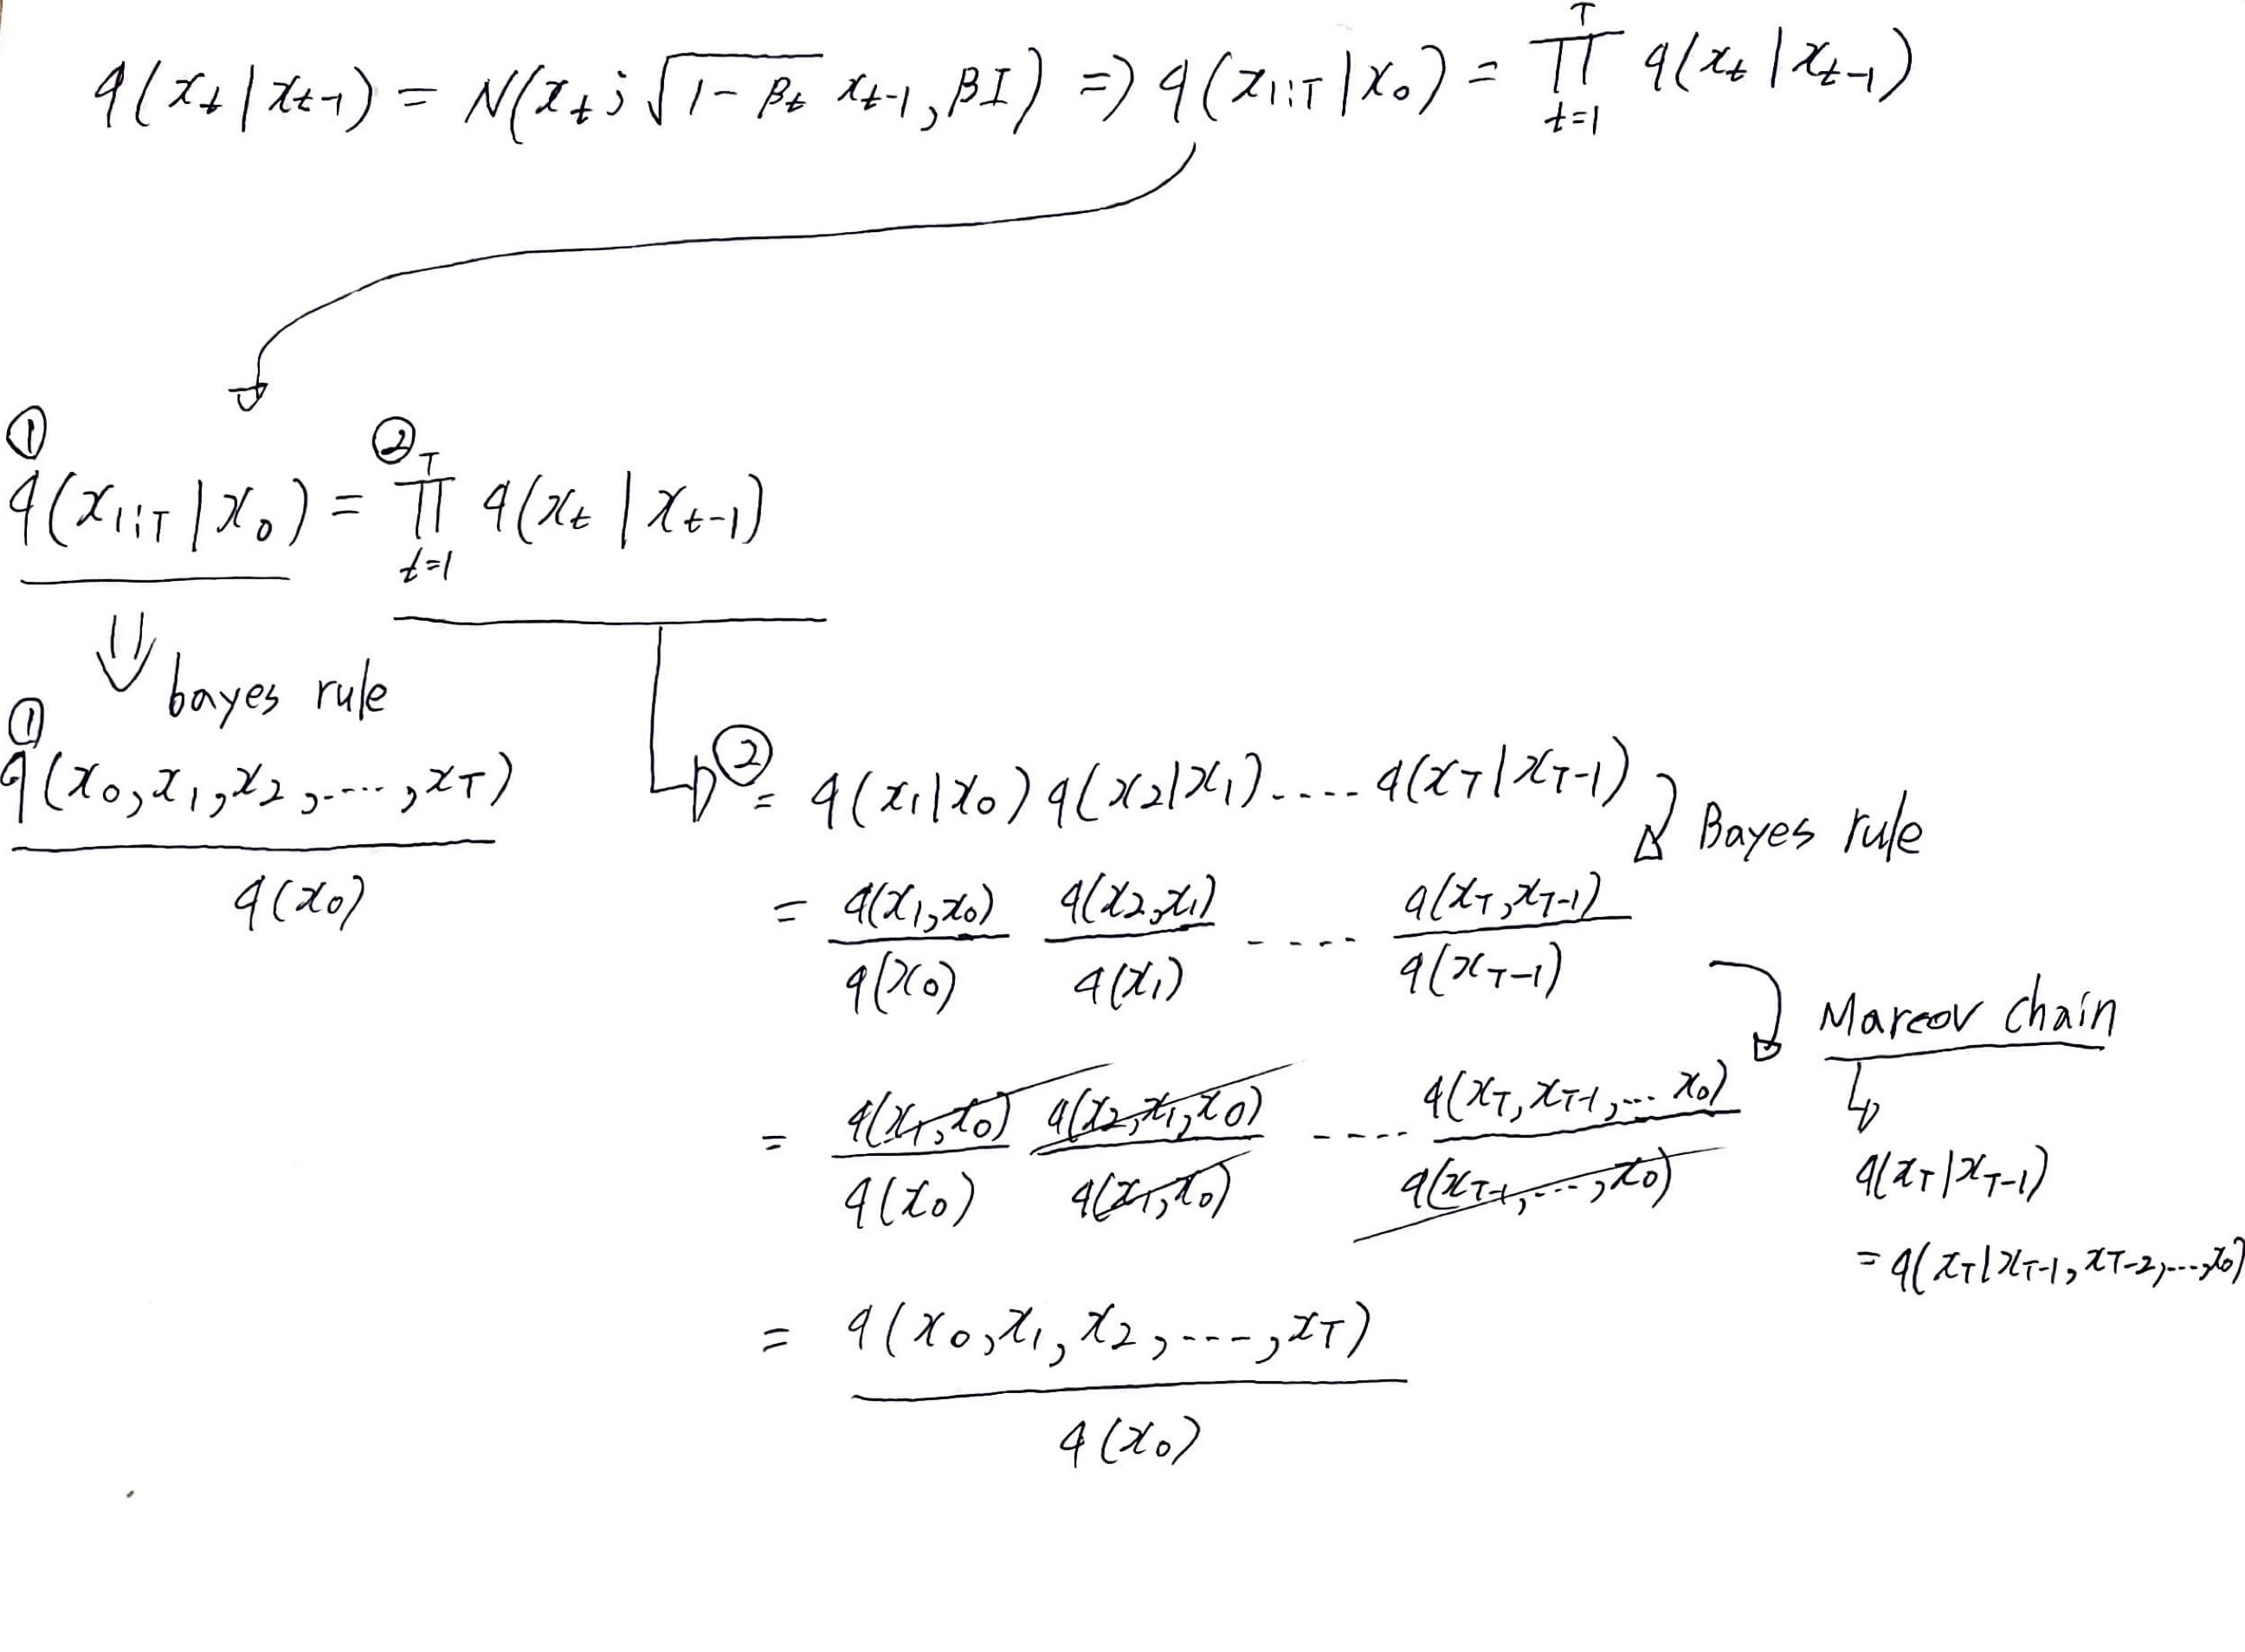 q(x_t | x_{t-1}) = N(x_t ; √(1-β_t) x_{t-1}, βI) ⇒ q(x_{1:T} | x_0) = ∏_{t=1}^{T} q(x_t | x_{t-1})
① ②
q(x_{1:T} | x_0) = ∏_{t=1}^{T} q(x_t | x_{t-1})
⇓ bayes rule
①
q(x_0, x_1, x_2, ...., x_T) / q(x_0)
② = q(x_1|x_0) q(x_2|x_1) .... q(x_T | x_{T-1})
Bayes rule
= q(x_1, x_0)/q(x_0) q(x_2, x_1)/q(x_1) .... q(x_T, x_{T-1})/q(x_{T-1})
Marcov chain
= q(x_1, x_0)/q(x_0) q(x_2, x_1, x_0)/q(x_1, x_0) .... q(x_T, x_{T-1}, ... x_0)/q(x_{T-1}, ..., x_0)
q(x_T | x_{T-1})
= q(x_T | x_{T-1}, x_{T-2}, ..., x_0)
= q(x_0, x_1, x_2, ...., x_T) / q(x_0)